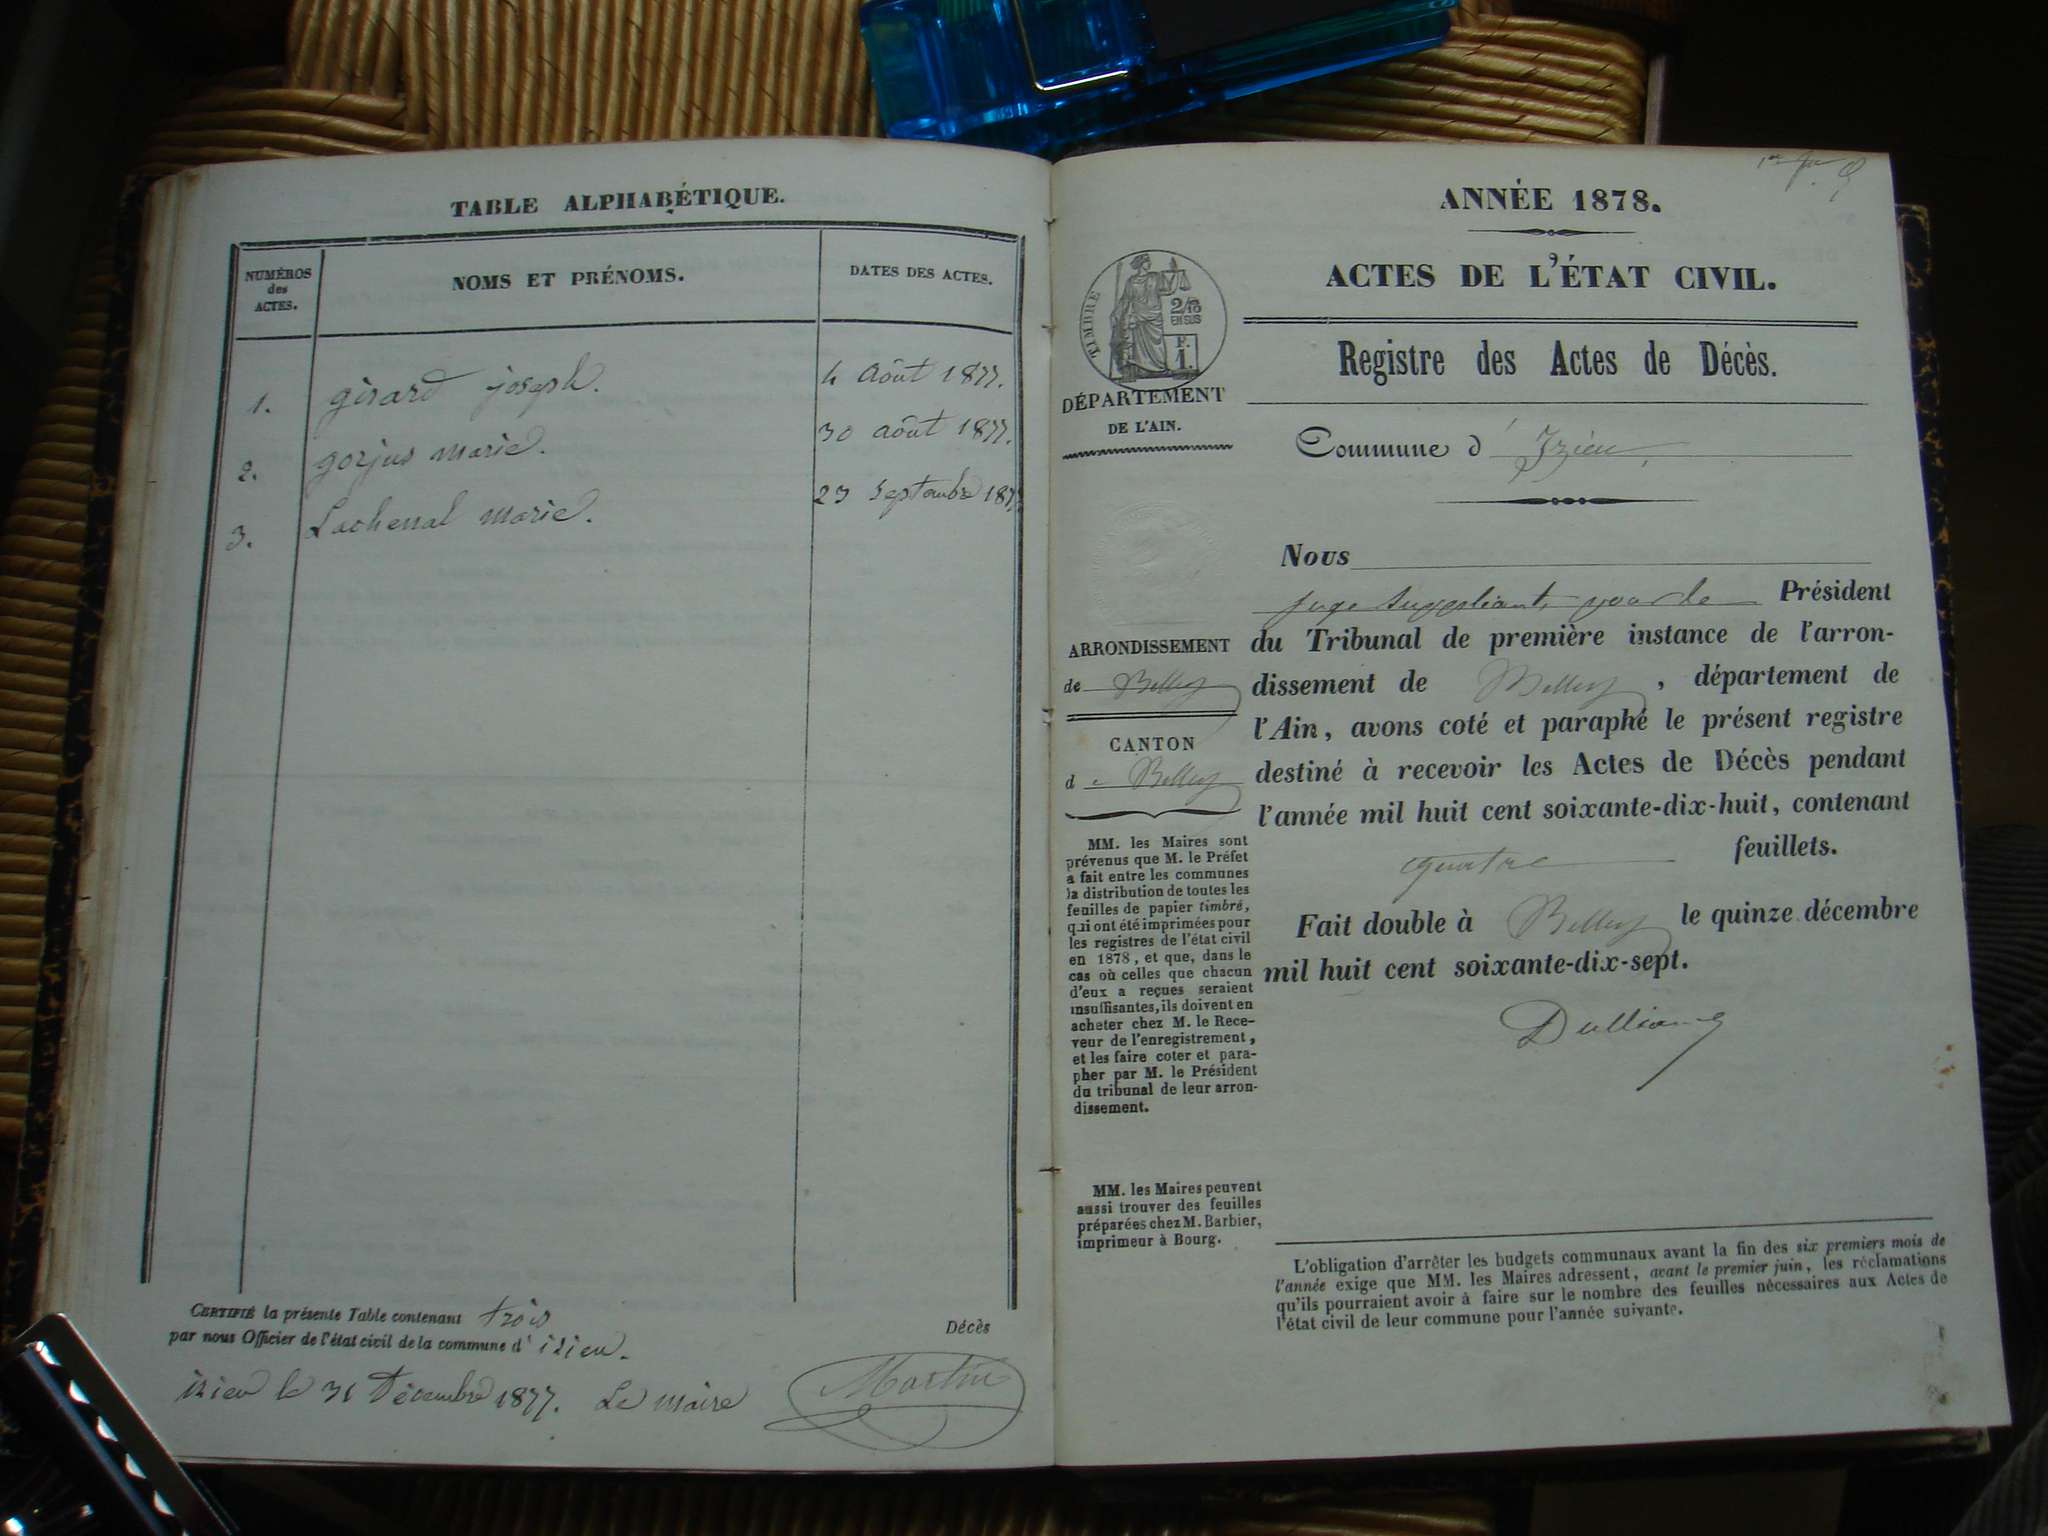 TABLE ALPHABÉTIQUE.
NUMÉROS
des
ACTES.
NOMS ET PRÉNOMS.
DATES DES ACTES.
1. girard joseph. 4 Août 1877.
2. gorjus marie. 30 août 1877.
3. Lachenal marie. 23 septembre 1877
CERTIFIÉ la présente Table contenant trois Décès
par nous Officier de l'état civil de la commune d' izieu.
izieu le 31 Décembre 1877. Le maire Martin
ANNÉE 1878.
ACTES DE L'ÉTAT CIVIL.
TIMBRE
2/10
EN SUS
F.
1.
DÉPARTEMENT
DE L'AIN.
Registre des Actes de Décès.
Commune d' Izieu
ARRONDISSEMENT
de Belley
CANTON
de Belley
MM. les Maires sont
prévenus que M. le Préfet
a fait entre les communes
la distribution de toutes les
feuilles de papier timbré,
qui ont été imprimées pour
les registres de l'état civil
en 1878, et que, dans le
cas où celles que chacun
d'eux a reçues seraient
insuffisantes, ils doivent en
acheter chez M. le Rece-
veur de l'enregistrement,
et les faire coter et para-
pher par M. le Président
du tribunal de leur arron-
dissement.
MM. les Maires peuvent
aussi trouver des feuilles
préparées chez M. Barbier,
imprimeur à Bourg.
Nous
juge suppléant, pour le Président
du Tribunal de première instance de l'arron-
dissement de Belley, département de
l'Ain, avons coté et paraphé le présent registre
destiné à recevoir les Actes de Décès pendant
l'année mil huit cent soixante-dix-huit, contenant
quatre feuillets.
Fait double à Belley le quinze décembre
mil huit cent soixante-dix-sept.
L'obligation d'arrêter les budgets communaux avant la fin des six premiers mois de
l'année exige que MM. les Maires adressent, avant le premier juin, les réclamations
qu'ils pourraient avoir à faire sur le nombre des feuilles nécessaires aux Actes de
l'état civil de leur commune pour l'année suivante.